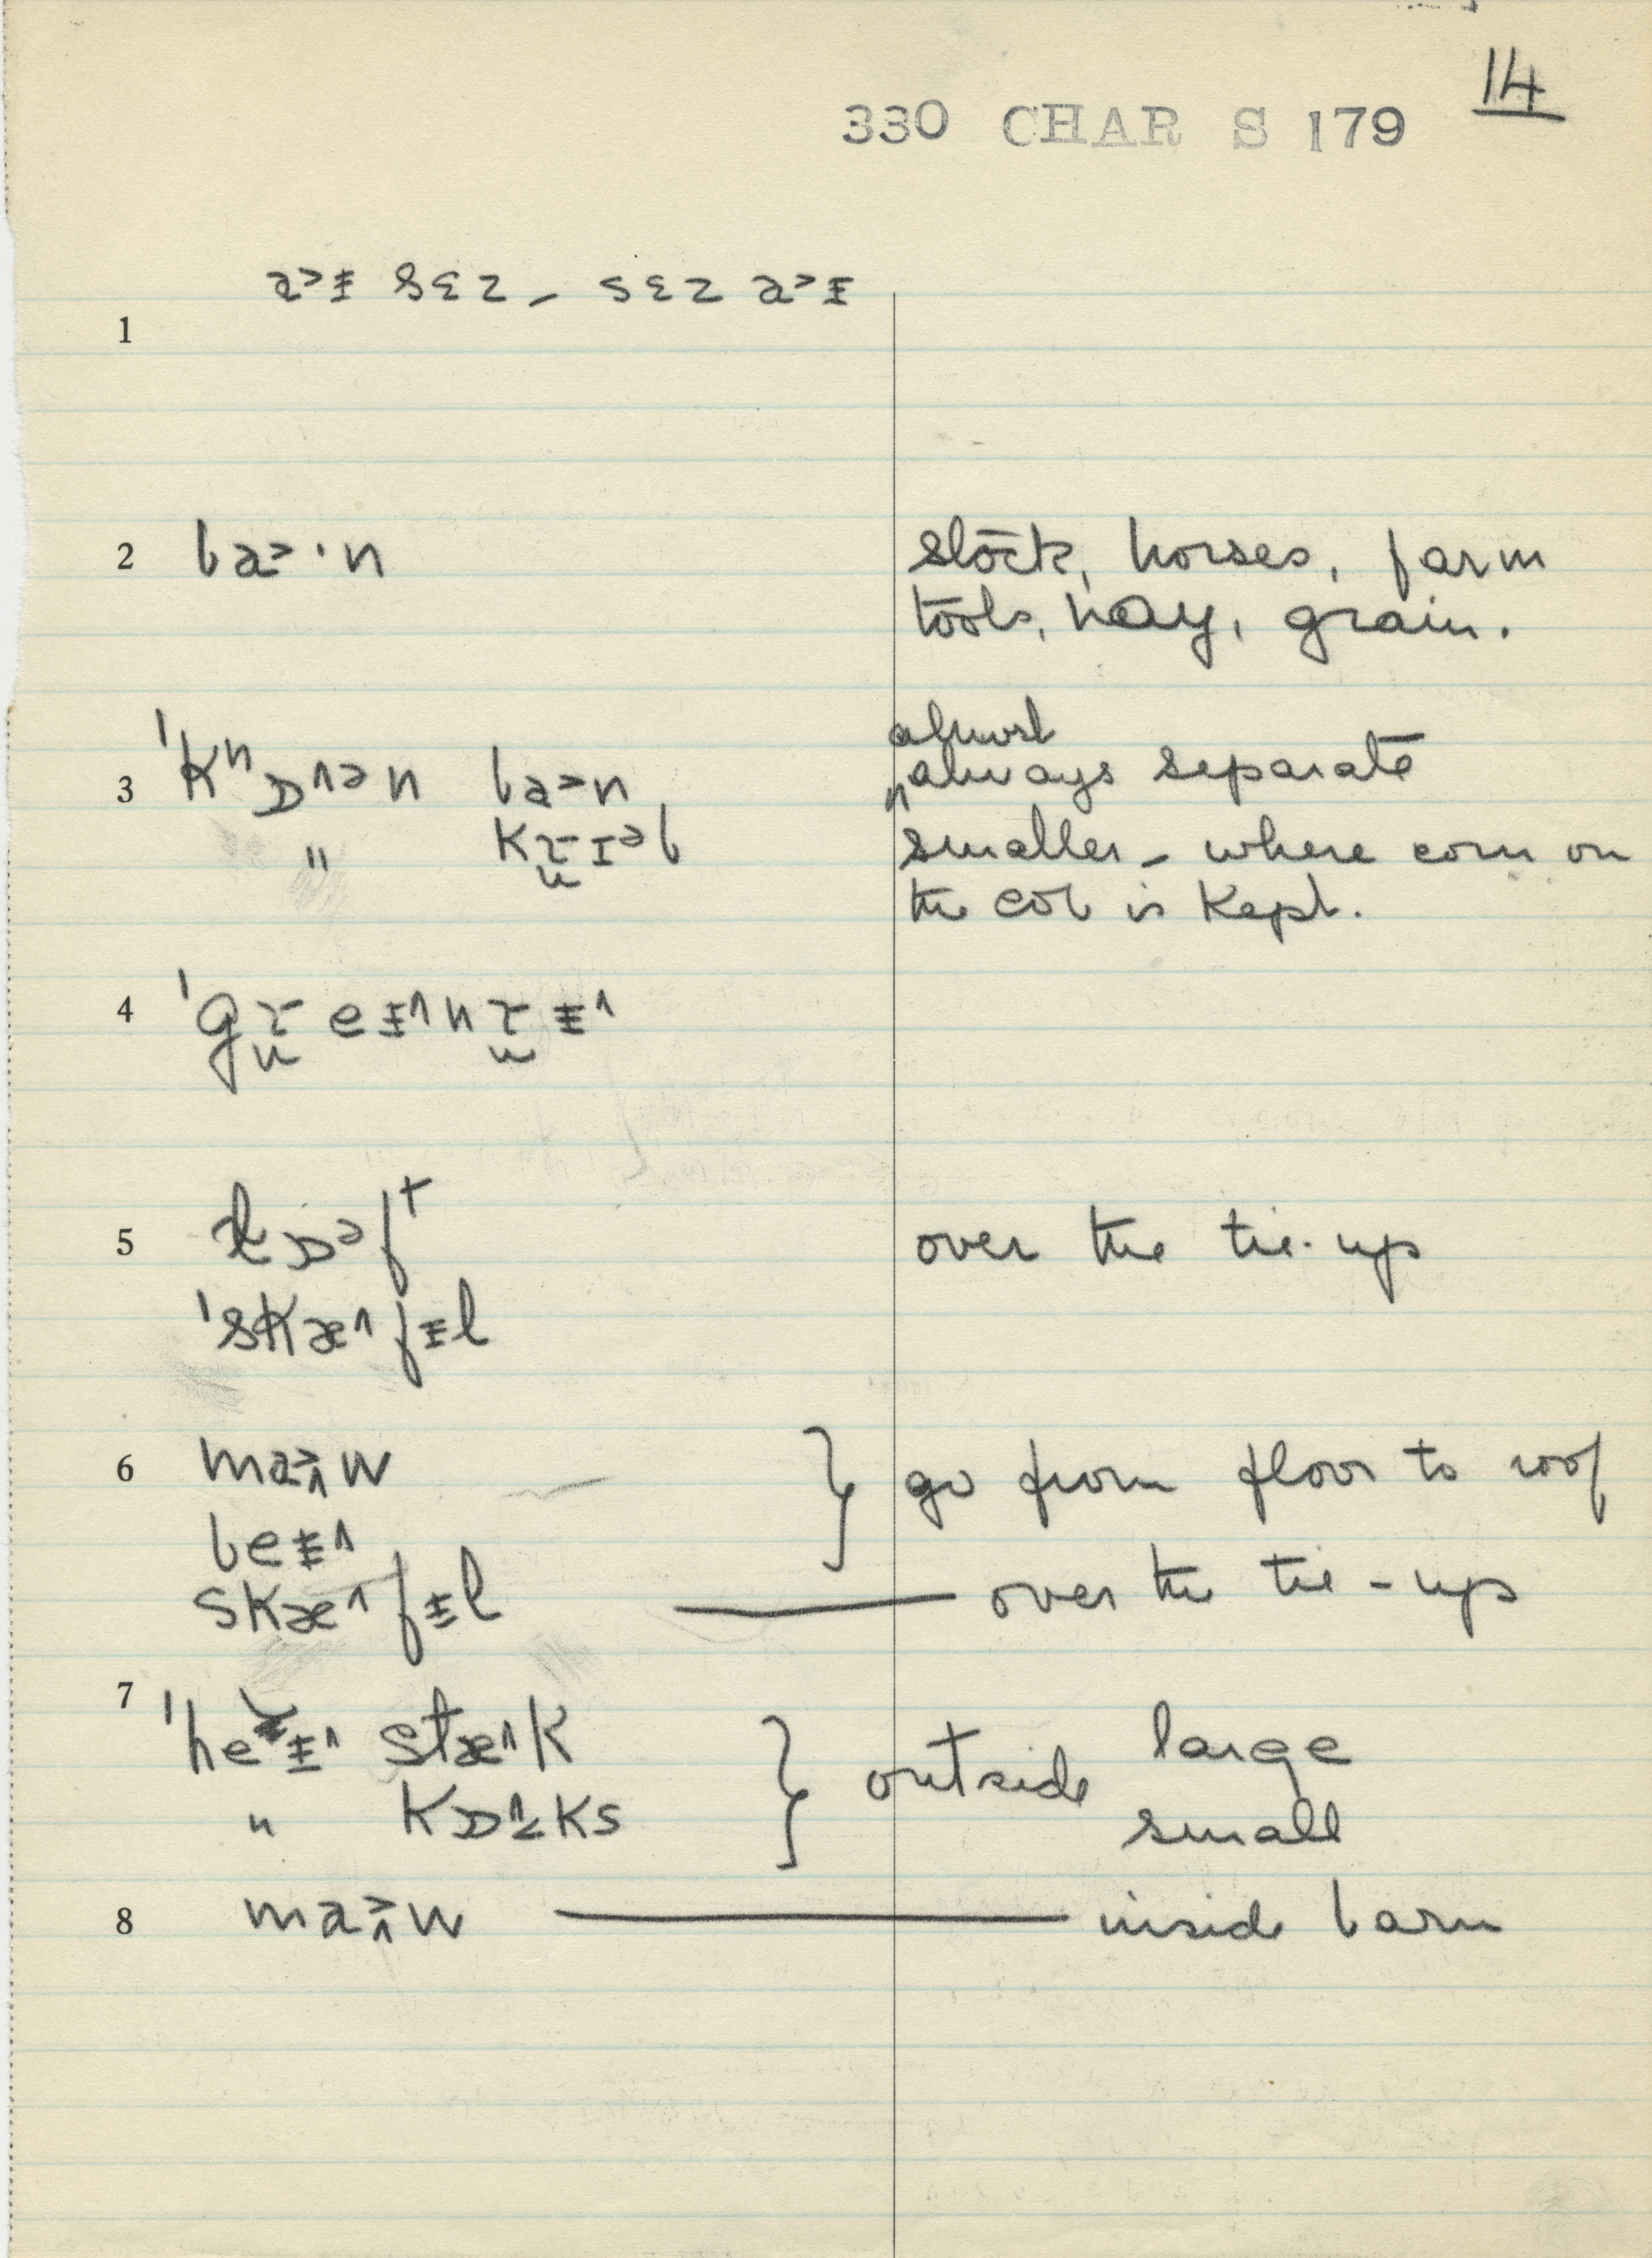 14
330 CHAR S 179
a˃ɪ sɛz – sɛz a˃ɪ
1
2 ba˃·n stock, horses, farm
tools, hay, grain.
almost
3 ˈkⁿɒ˄ən ba˃n always separate
" kɪᵊb smaller – where corn on
the cob is kept.
4
5 ɒᵊft over the tie-up
ˈskæ˄fɪl
6 ma˃˄w } go from floor to roof
beɪ˄
skæ˄fɪl — over the tie-up
7 ˈheɪ˄ stæ˄k } outside large
" kɒks small
8 ma˃˄w — inside barn